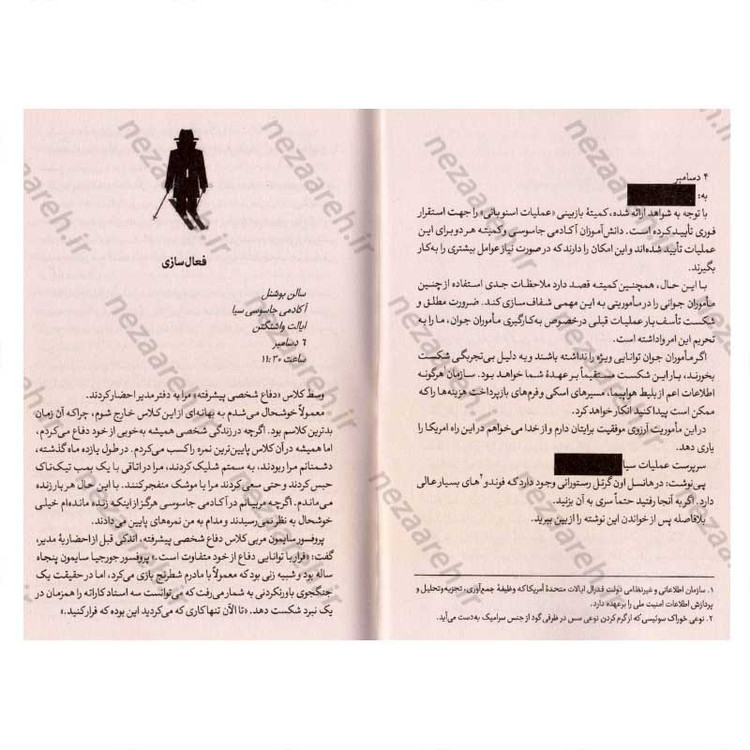 ۴ دسامبر
به:
با توجه به شواهد ارائه شده، کمیتهٔ بازبینی «عملیات اسنوبانی» را جهت استقرار
فوری تأیید کرده است. دانش‌آموزان آکادمی جاسوسی و کمیته هر دو برای این
عملیات تأیید شده‌اند و این امکان را دارند که در صورت نیاز عوامل بیشتری را به کار
بگیرند.
با این حال، همچنین کمیته قصد دارد ملاحظات جدی استفاده از چنین
مأموران جوانی را در مأموریتی به این مهمی شفاف‌سازی کند. ضرورت مطلق و
شکست تأسف‌بار عملیات قبلی درخصوص به‌کارگیری مأموران جوان، ما را به
تحریم این امر واداشته است.
اگر مأموران جوان توانایی ویژه را نداشته باشند و به دلیل بی‌تجربگی شکست
بخورند، بار این شکست مستقیماً بر عهدهٔ شما خواهد بود. سازمان هرگونه
اطلاعات اعم از بلیط هواپیما، مسیرهای اسکی و فرم‌های بازپرداخت هزینه‌ها را که
ممکن است پیدا کنید انکار خواهد کرد.
در این مأموریت آرزوی موفقیت برایتان دارم و از خدا می‌خواهم در این راه امریکا را
یاری دهد.
سرپرست عملیات سیا
پی‌نوشت: در هانسل اون گرتل رستورانی وجود دارد که فوندو۲های بسیار عالی
دارد. اگر به آنجا رفتید حتماً سری به آن بزنید.
بلافاصله پس از خواندن این نوشته را از بین ببرید.
۱. سازمان اطلاعاتی و غیرنظامی دولت فدرال ایالات متحدهٔ آمریکا که وظیفهٔ جمع‌آوری، تجزیه و تحلیل و
پردازش اطلاعات امنیت ملی را برعهده دارد.
۲. نوعی خوراک سوئیسی که از گرم کردن نوعی سس در ظرفی گود از جنس سرامیک به‌دست می‌آید.
فعال‌سازی
سالن بوشنل
آکادمی جاسوسی سیا
ایالت واشنگتن
۶ دسامبر
ساعت ۱۱:۳۰
وسط کلاس «دفاع شخصی پیشرفته» مرا به دفتر مدیر احضار کردند.
معمولاً خوشحال می‌شدم به بهانه‌ای از این کلاس خارج شوم، چراکه آن زمان
بدترین کلاسم بود. اگرچه در زندگی شخصی همیشه به‌خوبی از خود دفاع می‌کردم،
اما همیشه در آن کلاس پایین‌ترین نمره را کسب می‌کردم. در طول یازده ماه گذشته،
دشمنانم مرا ربودند، به سمتم شلیک کردند، مرا در اتاقی با یک بمب تیک‌تاک
حبس کردند و حتی سعی کردند مرا با موشک منفجر کنند. با این حال هر بار زنده
می‌ماندم. اگرچه مربیانم در آکادمی جاسوسی هرگز از اینکه زنده مانده‌ام خیلی
خوشحال به نظر نمی‌رسیدند و مدام به من نمره‌های پایین می‌دادند.
پروفسور سایمون مربی کلاس دفاع شخصی پیشرفته، اندکی قبل از احضاریهٔ مدیر،
گفت: «فرار با توانایی دفاع از خود متفاوت است.» پروفسور جورجیا سایمون پنجاه
ساله بود و شبیه زنی بود که معمولاً با مادرم شطرنج بازی می‌کرد، اما در حقیقت یک
جنگجوی باورنکردنی به شمار می‌رفت که می‌توانست سه استاد کاراته را همزمان در
یک نبرد شکست دهد. «تا الآن تنها کاری که می‌کردید این بوده که فرار کنید.»
nezaareh.ir
nezaareh.ir
nezaareh.ir
nezaareh.ir
nezaareh.ir
nezaareh.ir
nezaareh.ir
nezaareh.ir